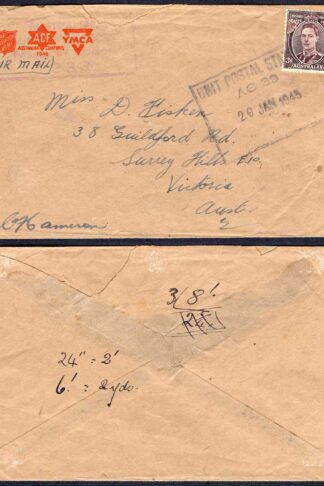 ACF
AUSTRALIAN COMFORTS
FUND
YMCA
AIR MAIL)
UNIT POSTAL STN
20 JAN 1945
3D
AUSTRALIA
Miss D. Fisken
38 Guildford Rd.
Surrey Hills E10,
Victoria
Aust.
CHameron
3/8'
24" = 2'
6' = 2 yds.